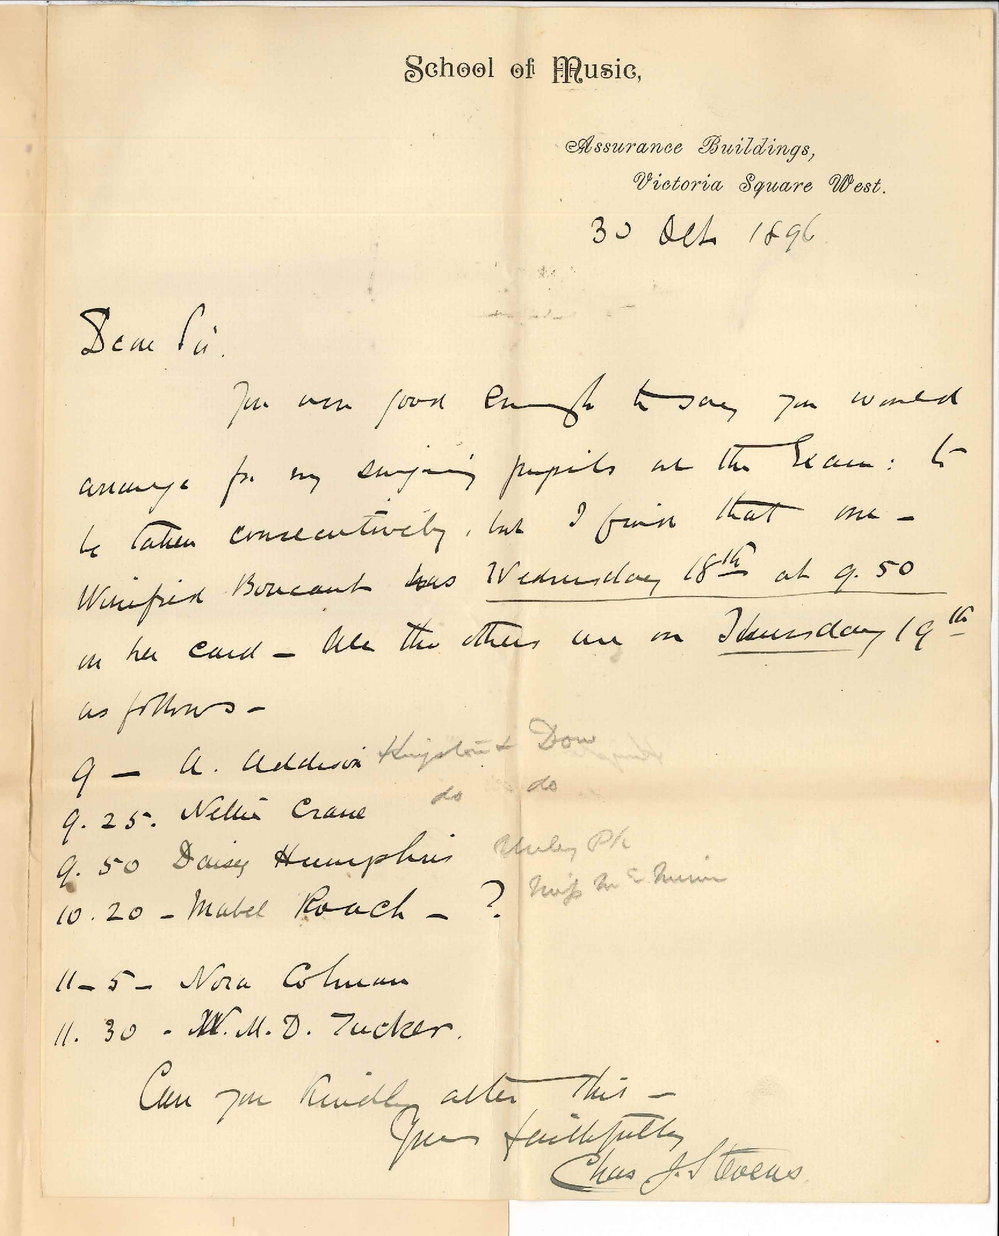 School of Music,
Assurance Buildings,
Victoria Square West.
30 Oct 1896
Dear Sir.
You were good enough to say you would
arrange for my singing pupils at the Exam: to
be taken consecutively, but I find that one -
Winifred Boucaut has Wednesday 18th at 9.50
on her card - All the others are on Thursday 19th
as follows -
9 - A. Addison Kingston & Dow
9.25. Nellie Crane do do
9.50 Daisy Humphris Unley Pk
10.20 - Mabel Roach - ? Miss
11-5- Nora Colman
11.30 - W. M. D. Tucker.
Can you kindly alter this -
Yours faithfully
Chas J. Stevens